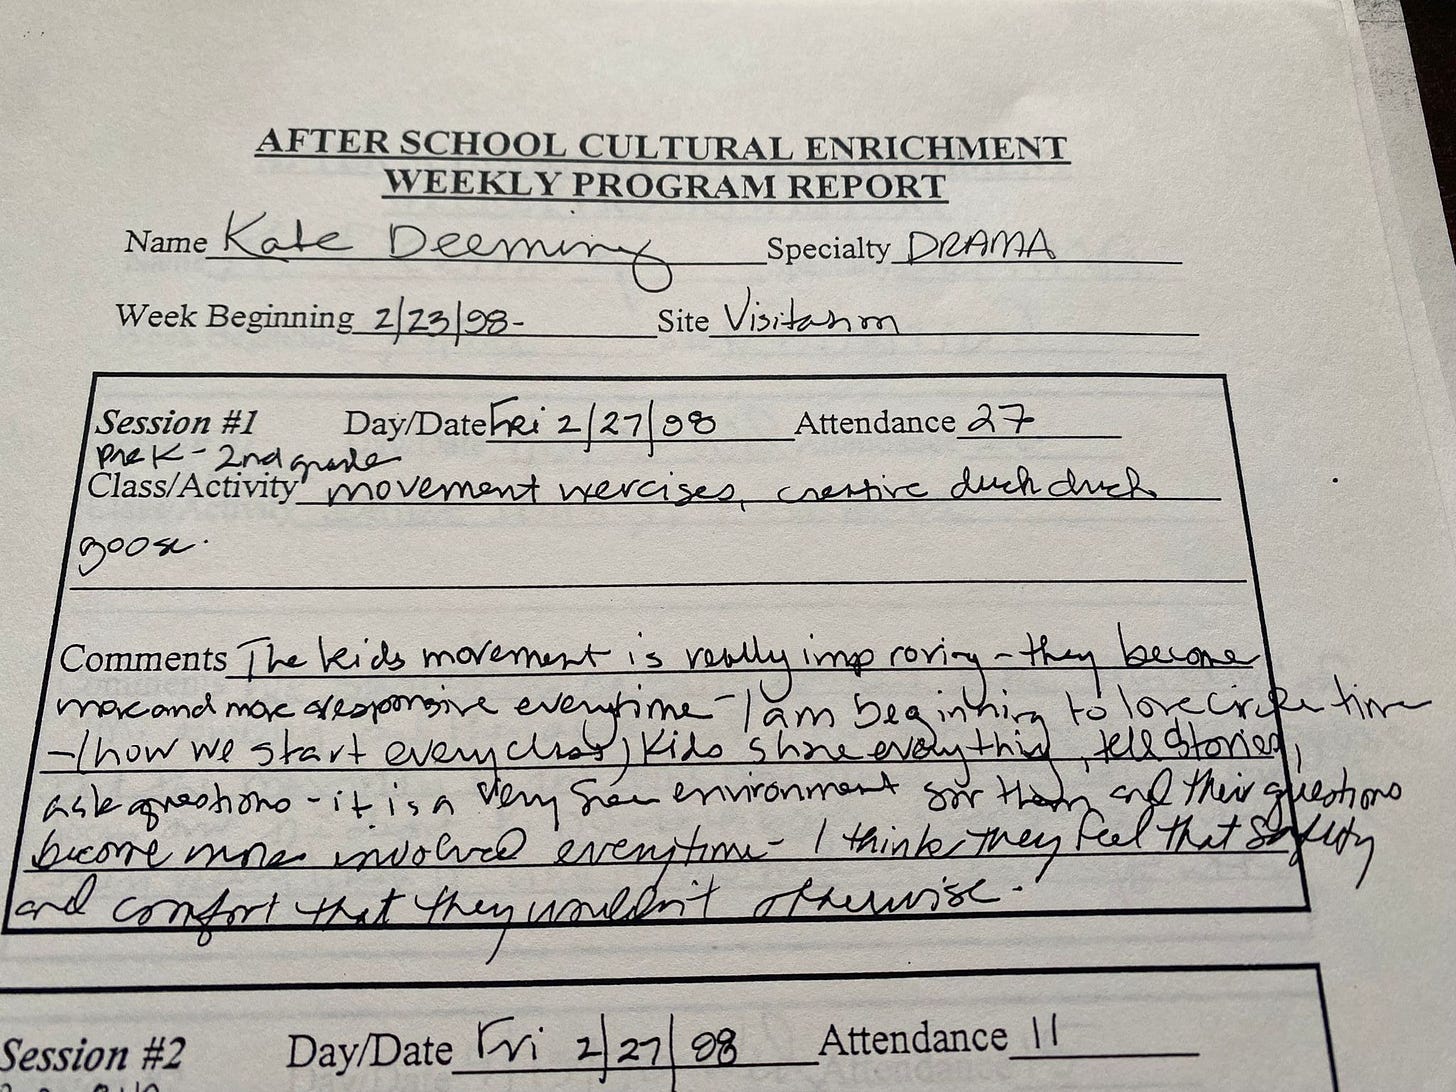 AFTER SCHOOL CULTURAL ENRICHMENT
WEEKLY PROGRAM REPORT
Name Kate Deeming Specialty DRAMA
Week Beginning 2/23/98- Site Visitation
Session #1 Day/Date Fri 2/27/98 Attendance 27
Pre K - 2nd grade
Class/Activity movement exercises, creative duck duck
goose.
Comments The kids movement is really improving - they become
more and more responsive everytime - I am beginning to love circle time
- (how we start every class) Kids share everything, tell stories,
ask questions - it is a very free environment for them and their questions
become more involved everytime - I think they feel that safety
and comfort that they wouldn't otherwise.
Session #2 Day/Date Fri 2/27/98 Attendance 11